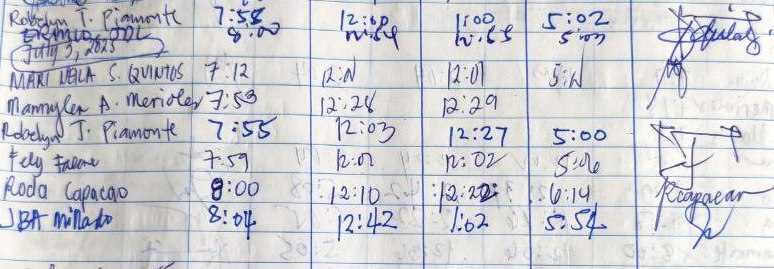 Robelyn T. Piamonte 7:58 12:00 1:00 5:02
8:00 12:54 12:55 5:03
July 3, 2023
MARI NELA S. QUINTOS 7:12 12:01 12:01 5:01
Mannylen A. Merioles 7:53 12:28 12:29
Robelyn T. Piamonte 7:55 12:03 12:27 5:00
Fely 7:59 12:01 12:02 5:06
Roda Capacao 8:00 12:10 12:22 6:14
JBA Millado 8:04 12:42 1:02 5:54